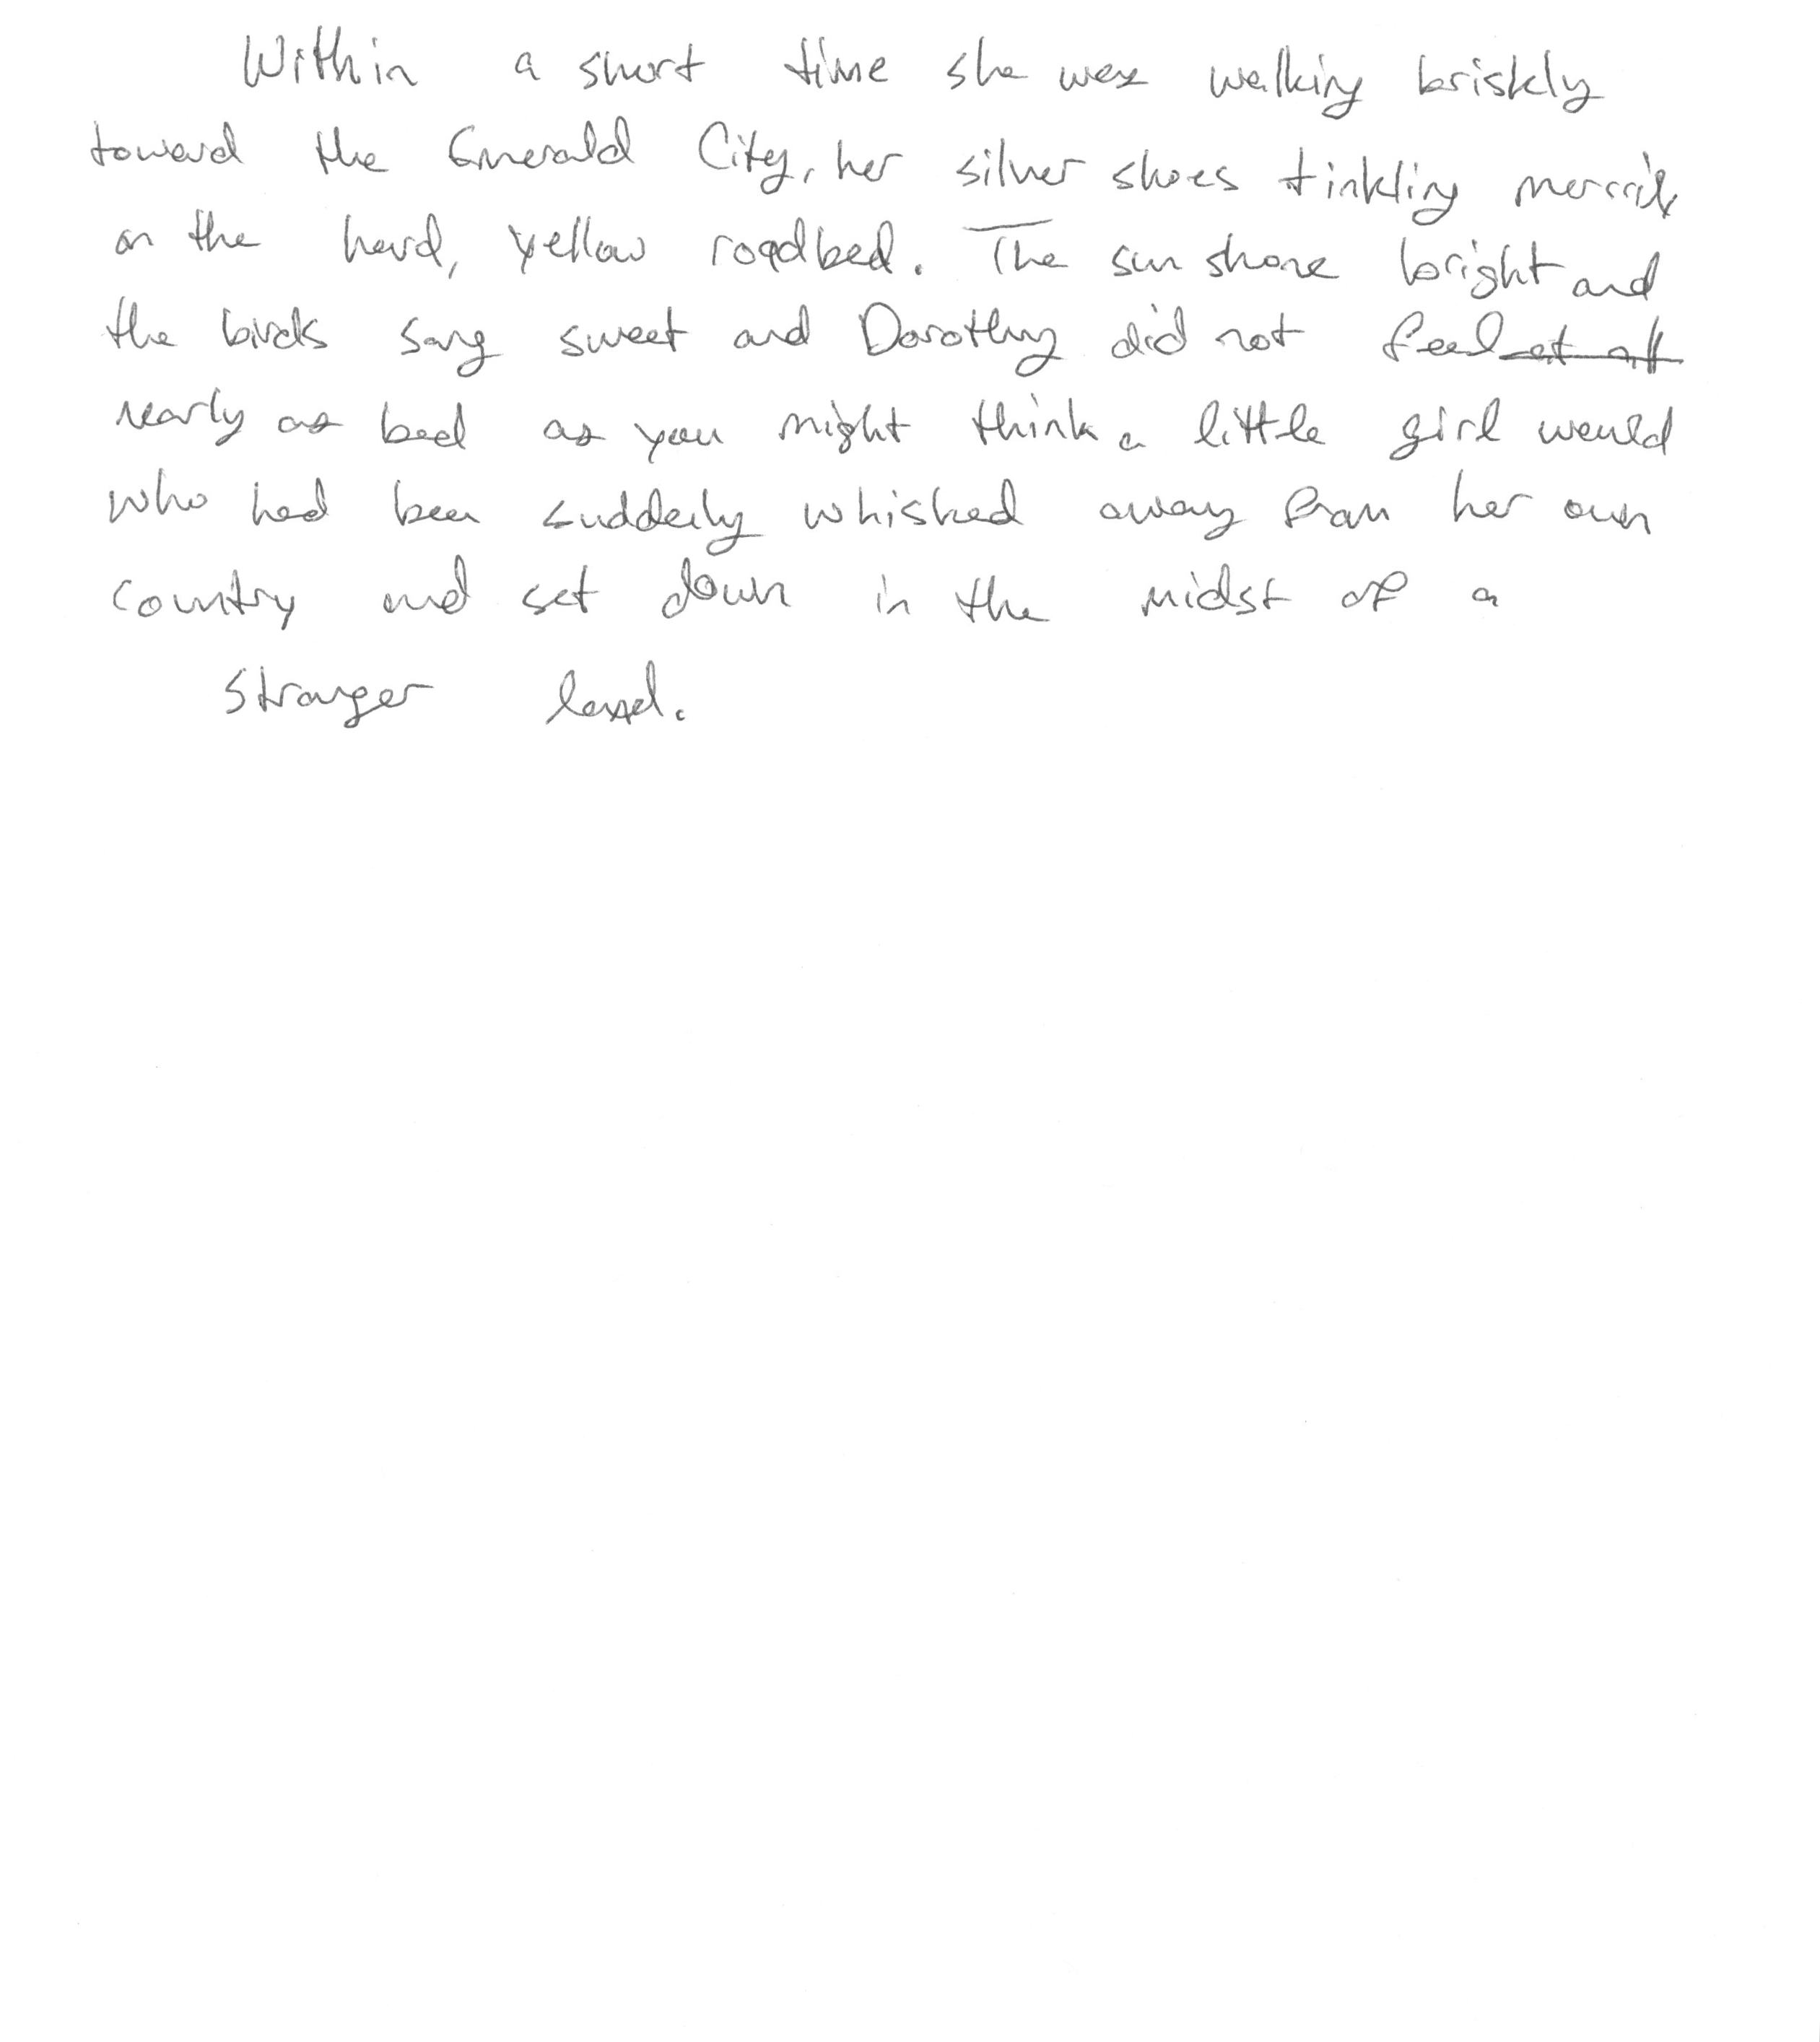 Within a short time she was walking briskly
toward the Emerald City, her silver shoes tinkling merrily
on the hard, yellow roadbed. The sun shone bright and
the birds sang sweet and Dorothy did not feel at all
nearly as bad as you might think a little girl would
who had been suddenly whisked away from her own
country and set down in the midst of a
stranger land.